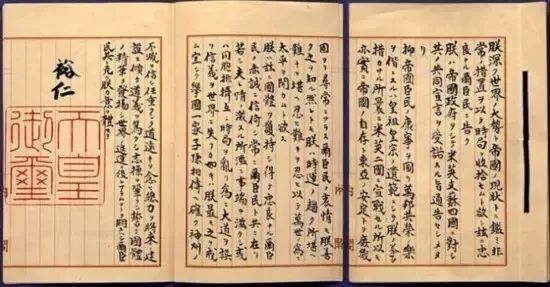 朕深ク世界ノ大勢ト帝國ノ現状トニ鑑ミ非
常ノ措置ヲ以テ時局ヲ收拾セムト欲シ茲ニ忠
良ナル爾臣民ニ告ク
朕ハ帝國政府ヲシテ米英支蘇四國ニ對シ
其ノ共同宣言ヲ受諾スル旨通告セシメタ
リ
抑々帝國臣民ノ康寧ヲ圖リ萬邦共榮ノ樂
ヲ偕ニスルハ皇祖皇宗ノ遺範ニシテ朕ノ拳々
措カサル所曩ニ米英二國ニ宣戰セル所以モ
亦實ニ帝國ノ自存ト東亞ノ安定トヲ庶幾
固ヨリ尋常ニアラス爾臣民ノ衷情モ朕善
ク之ヲ知ル然レトモ朕ハ時運ノ趨ク所堪ヘ
難キヲ堪ヘ忍ヒ難キヲ忍ヒ以テ萬世ノ為ニ
太平ヲ開カムト欲ス
朕ハ茲ニ國體ヲ護持シ得テ忠良ナル爾臣
民ノ赤誠ニ信倚シ常ニ爾臣民ト共ニ在リ
若シ夫レ情ノ激スル所濫ニ事端ヲ滋クシ或
ハ同胞排擠互ニ時局ヲ亂リ為ニ大道ヲ誤
リ信義ヲ世界ニ失フカ如キハ朕最モ之ヲ戒
ム宜シク擧國一家子孫相傳ヘ確ク神州ノ
不滅ヲ信シ任重クシテ道遠キヲ念ヒ總力ヲ將來ノ建
設ニ傾ケ道義ヲ篤クシ志操ヲ鞏クシ誓テ國體
ノ精華ヲ發揚シ世界ノ進運ニ後レサラムコトヲ期スヘシ爾臣
民其レ克ク朕カ意ヲ體セヨ
裕仁
天皇
御璽